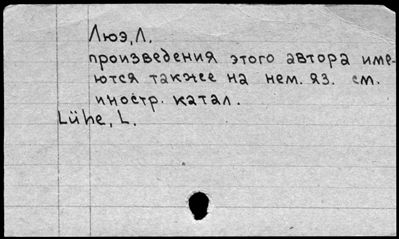 Люэ, Л.
произведения этого автора име-
ются также на нем. яз. см.
иностр. катал.
Lühe, L.